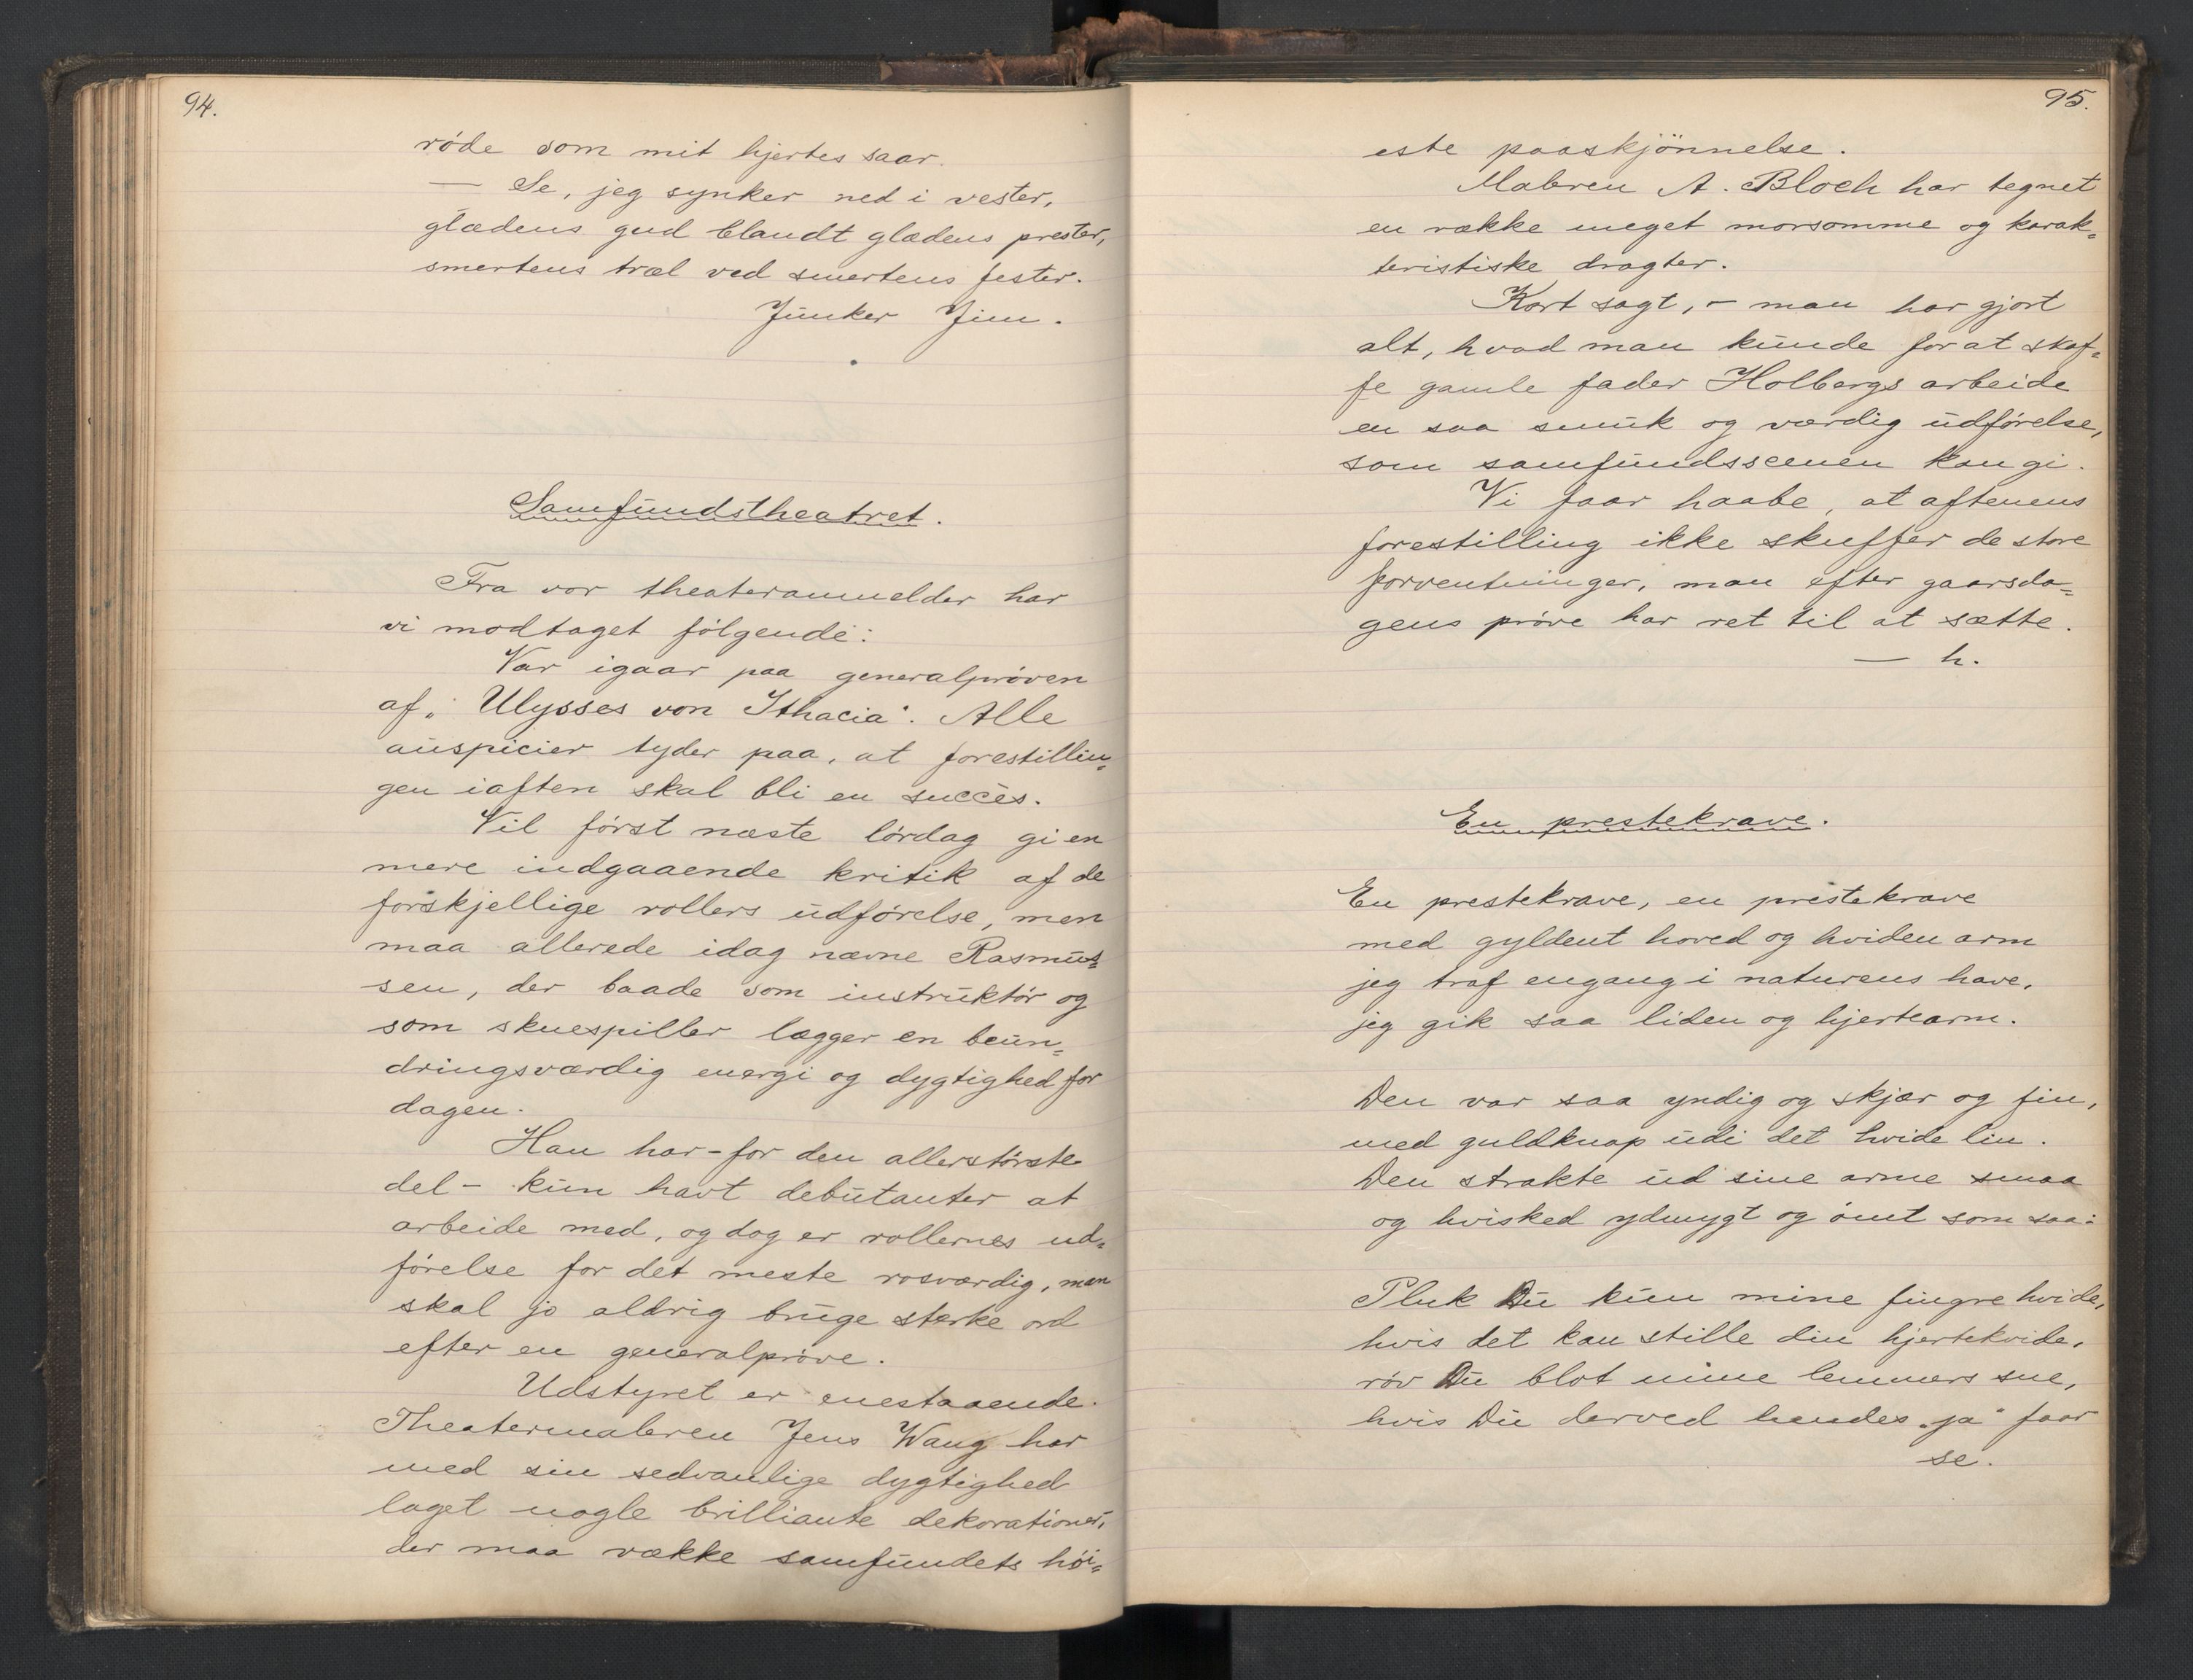 94.
røde som mit hjertes saar.
— Se, jeg synker ned i vester,
glædens gud blandt glædens prester,
smertens træl ved smertens fester.
Junker Jim.
Samfundstheatret.
Fra vor theateranmelder har
vi modtaget følgende:
Var igaar paa generalprøven
af „Ulysses von Ithacia“. Alle
auspicier tyder paa, at forestillin=
gen iaften skal bli en succès.
Vil først næste lørdag gi en
mere indgaaende kritik af de
forskjellige rollers udførelse, men
maa allerede idag nævne Rasmus=
sen, der baade som instruktør og
som skuespiller lægger en beun=
dringsværdig energi og dygtighed for
dagen.
Han har – for den allerstørste
del – kun havt debutanter at
arbeide med, og dog er rollernes ud=
førelse for det meste rosværdig, man
skal jo aldrig bruge sterke ord
efter en generalprøve.
Udstyret er enestaaende.
Theatermaleren Jens Wang har
med sin sedvanlige dygtighed
laget nogle brilliante dekorationer,
der maa vække samfundets høi=
95.
este paaskjønnelse.
Maleren A. Bloch har tegnet
en række meget morsomme og karak=
teristiske dragter.
Kort sagt, – man har gjort
alt, hvad man kunde for at skaf=
fe gamle fader Holbergs arbeide
en saa smuk og værdig udførelse,
som samfundsscenen kan gi.
Vi faar haabe, at aftenens
forestilling ikke skuffer de store
forventninger, man efter gaarsda=
gens prøve har ret til at sætte.
— h.
En prestekrave.
En prestekrave, en prestekrave
med gyldent hoved og hviden arm
jeg traf engang i naturens have,
jeg gik saa liden og hjertearm.
Den var saa yndig og skjær og fin,
med guldknap udi det hvide lin.
Den strakte ud sine arme smaa
og hvisked ydmygt og ømt som saa:
Pluk Du kun mine fingre hvide,
hvis det kan stille din hjertekvide,
røv Du blot mine lemmers sne,
hvis Du derved hendes „ja“ faar
se.